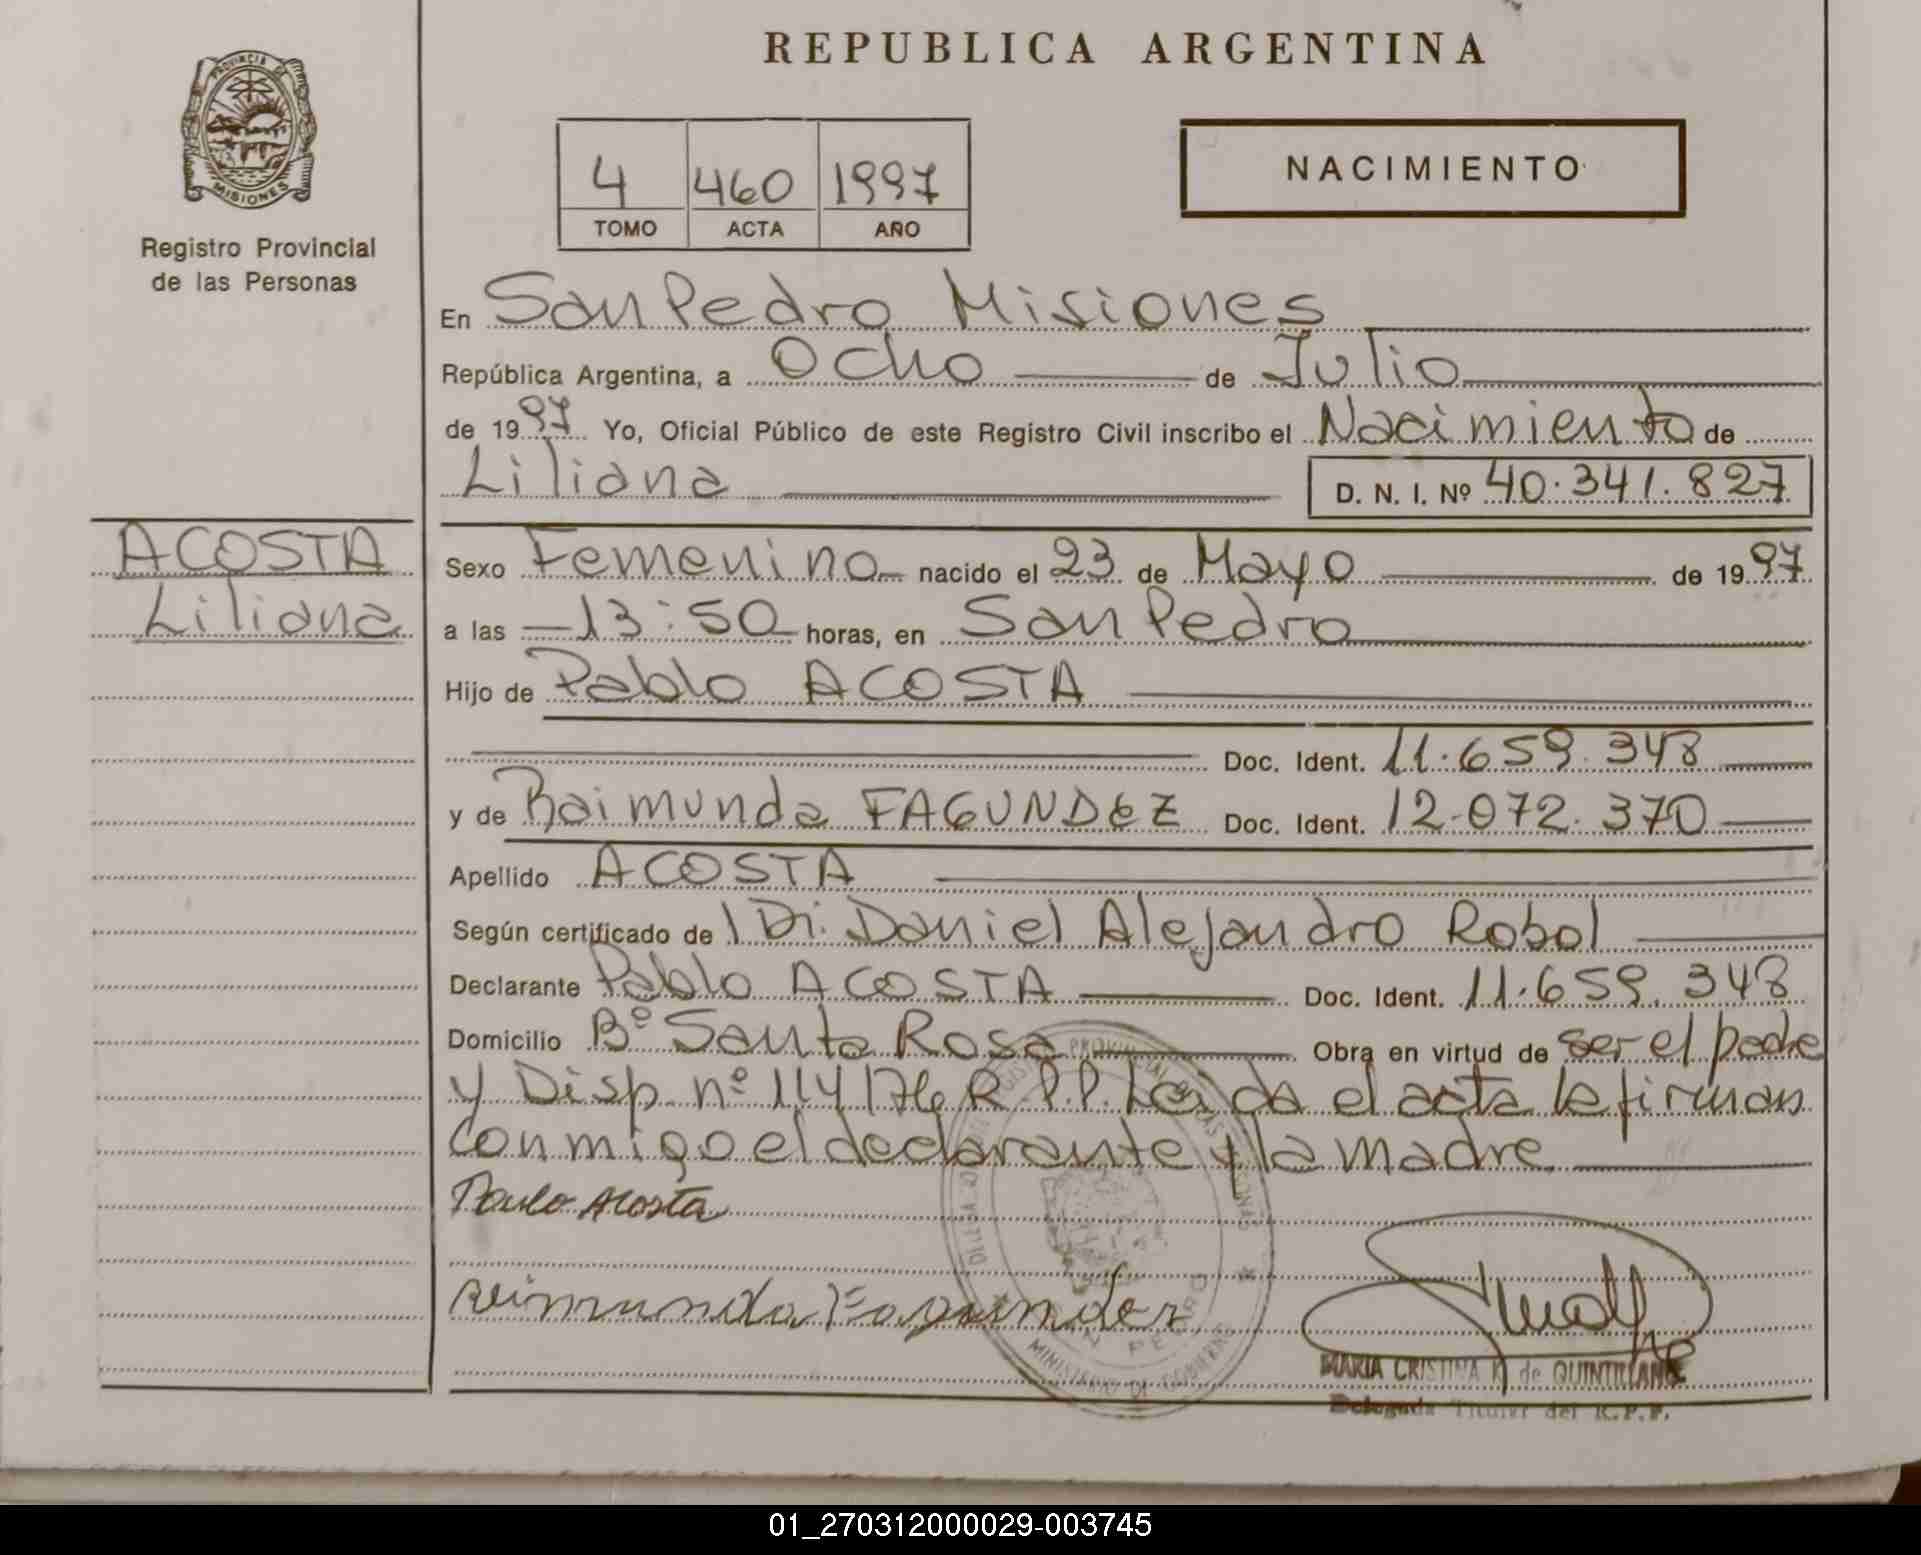 REPUBLICA ARGENTINA
PROVINCIA DE MISIONES
Registro Provincial
de las Personas
4 460 1997
TOMO ACTA AÑO
NACIMIENTO
En San Pedro Misiones
República Argentina, a Ocho de Julio
de 1997 Yo, Oficial Público de este Registro Civil inscribo el Nacimiento de
Liliana D. N. I. Nº 40.341.827
ACOSTA
Liliana
Sexo Femenino nacido el 23 de Mayo de 1997
a las 13:50 horas, en San Pedro
Hijo de Pablo ACOSTA
Doc. Ident. 11.659.348
y de Raimunda FAGUNDEZ Doc. Ident. 12.072.370
Apellido ACOSTA
Según certificado de Daniel Alejandro Robol
Declarante Pablo ACOSTA Doc. Ident. 11.659.348
Domicilio Bº Santa Rosa Obra en virtud de ser el padre
y Disp. nº 114/76 R.P.P. Leída el acta la firman
conmigo el declarante y la madre
Paulo Acosta
Reimunda Fagundez
MINISTERIO DE GOBIERNO
SAN PEDRO
MARIA CRISTINA K de QUINTILLANA
Delegada Titular del R.P.P.
01_270312000029-003745